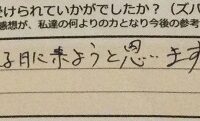 受けられていかがでしたか？（ズバ
感想が、私達の何よりの力となり今後の参考
る月に来ようと思います